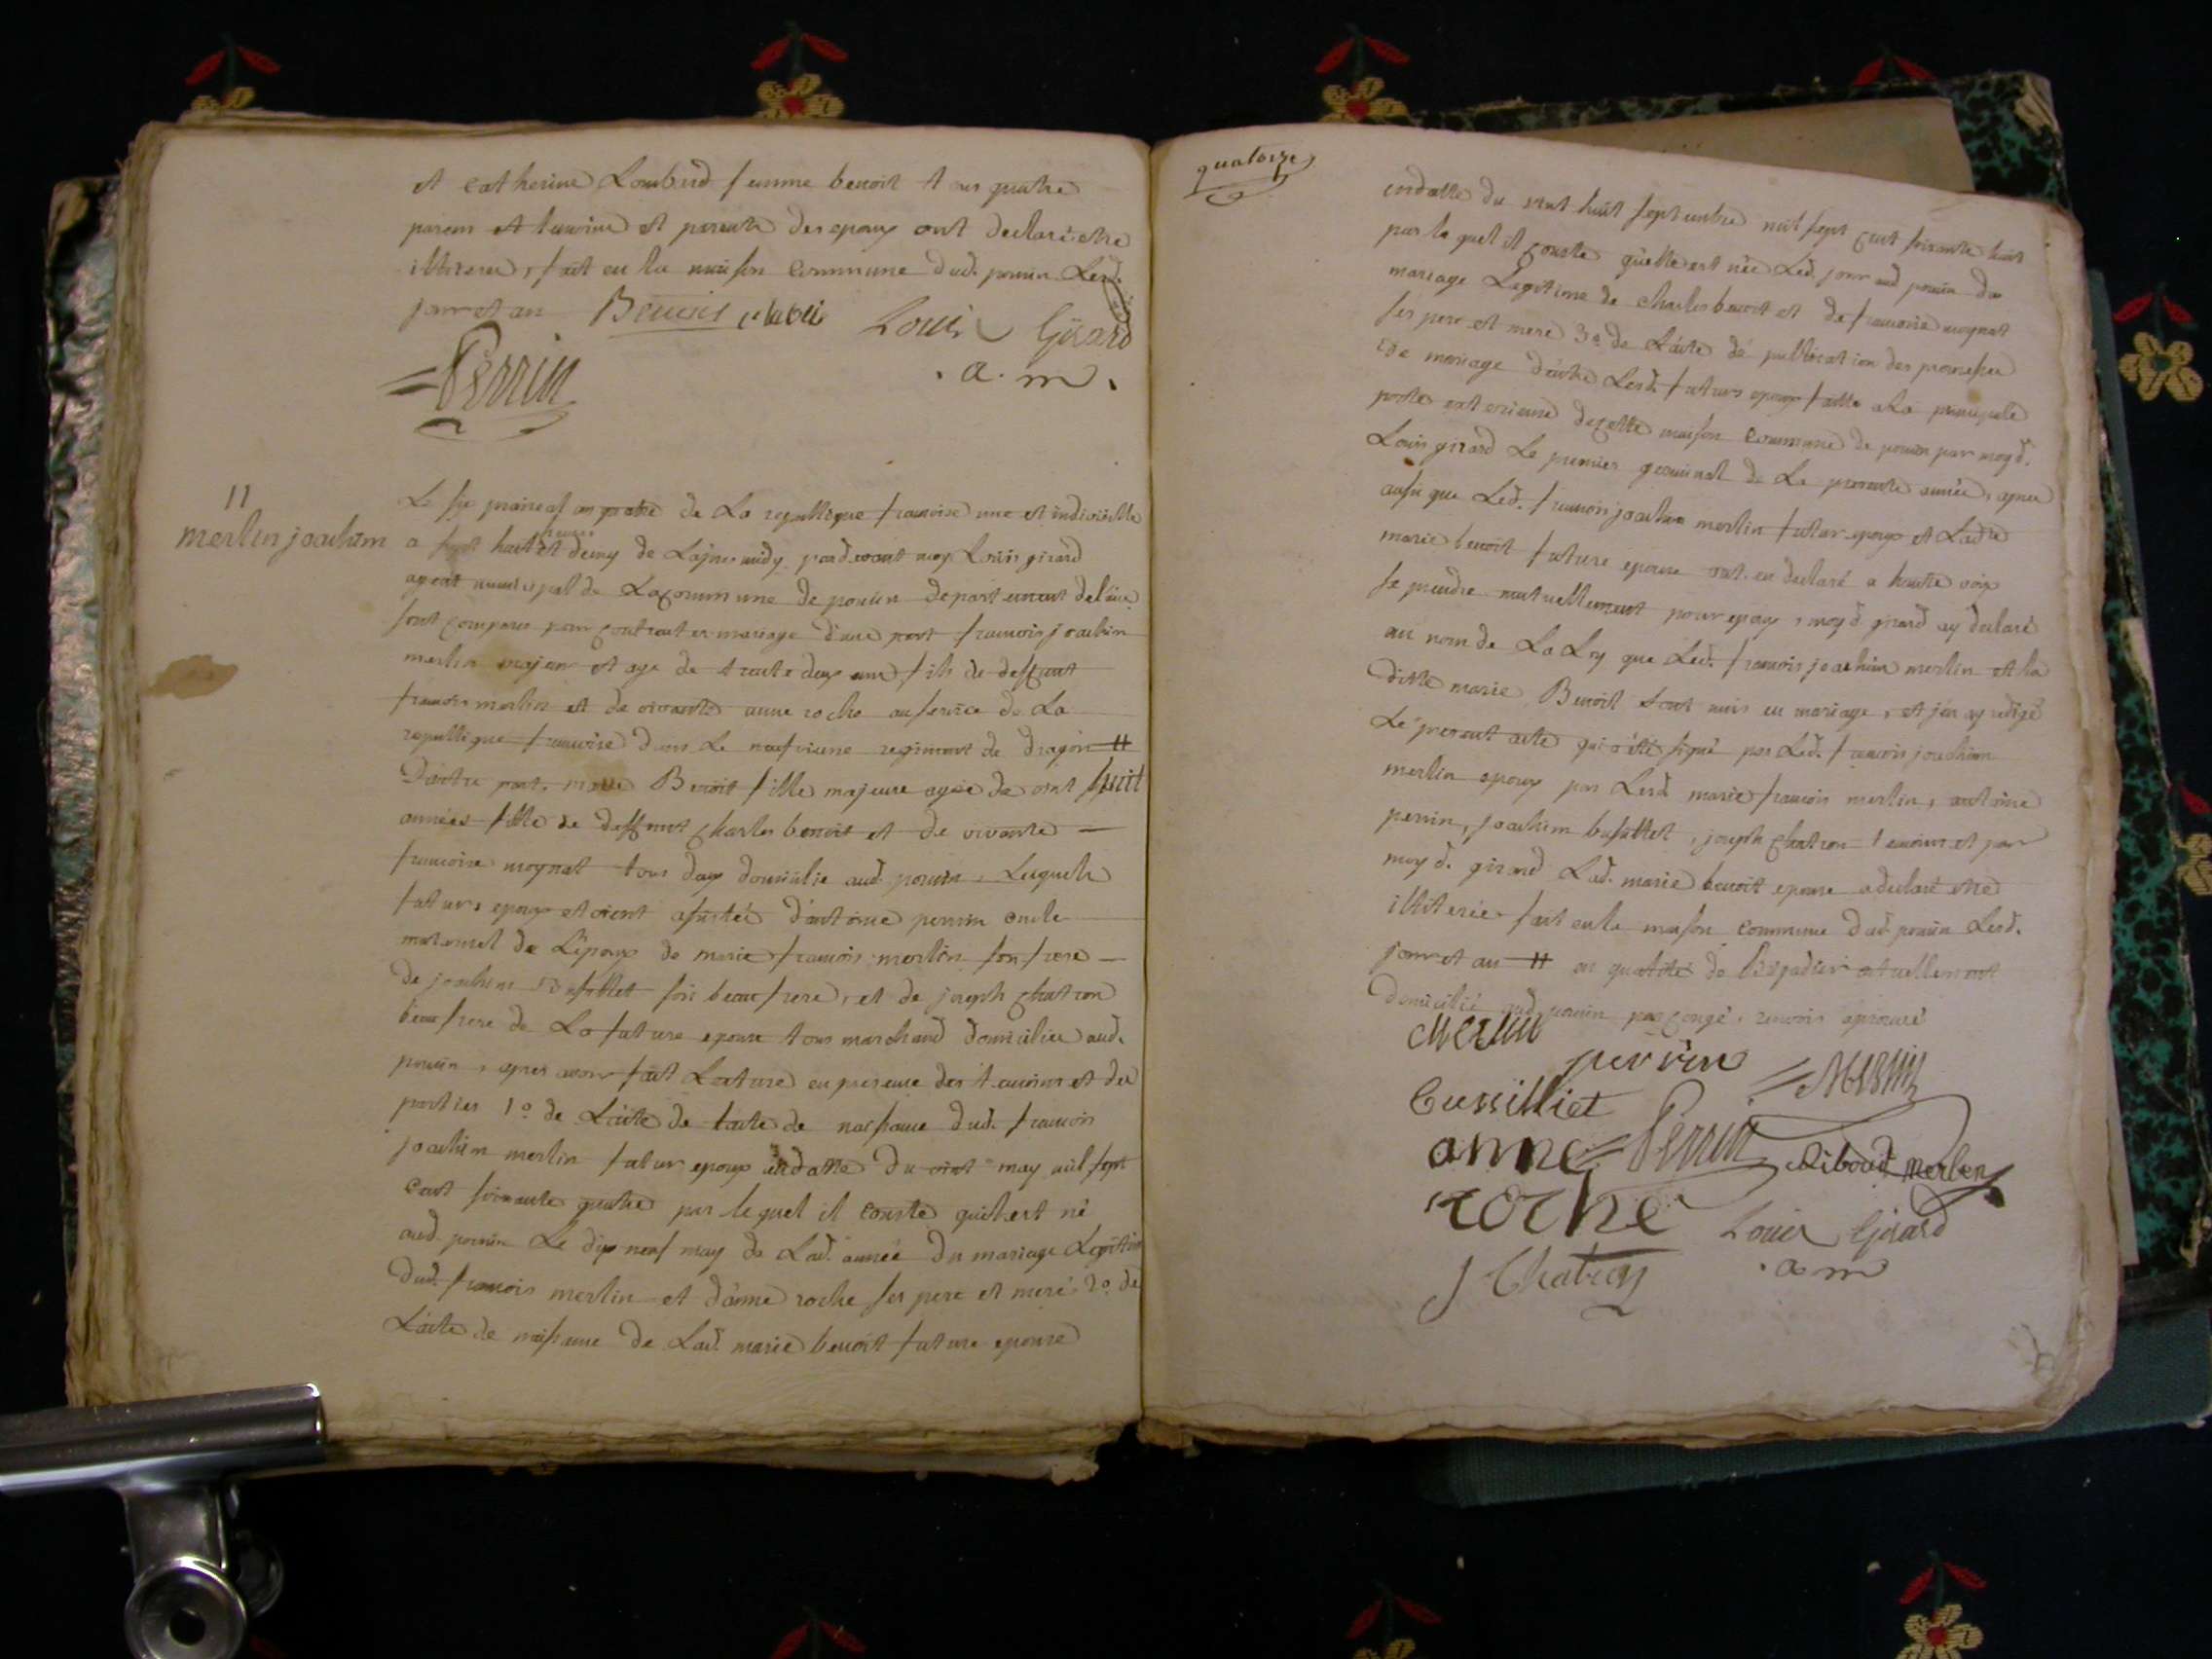 et catherine Lombard femme benoit tous quatre
parens et temoins et parente des epoux ont declaré etre
illiteres, fait en la maison commune dud. poncin Lesd.
jour et an Benois claude Louis Girard
Perrin . a . m .
11
merlin joachim
Le six prairial an quatre de La republique francoise une et indivisible
a huit heures et demy de Lapres midy pardevant moy Louis girard
agent municipal de La commune de poncin departement de L'ain
sont comparus pour contracter mariage d'une part francois joachim
merlin majeur et age de trente deux ans fils de deffunt
francois merlin et de vivante anne roche au service de La
republique francoise dans Le neufvieme regiment de dragon #
D'autre part, marie Benoit fille majeure agée de vint huit
années fille de deffunt charles benoit et de vivante
francoise moynat tous deux domicilie aud. poncin, Lesquels
futurs epoux etoient assistée d'antoine perrin oncle
maternel de L'epoux de marie francois merlin son frere
de joachim Bussillet son beau frere, et de joseph chatron
beau frere de La future epouse tous marchand domicilies aud.
poncin, apres avoir fait Lecture en presence des temoins et des
parties 1º de L'acte de L'acte de naissance dud. francois
joachim merlin futur epoux en datte du vint may mil sept
cent soixante quatre par lequel il conste quil est né
aud. poncin Le dix neuf may de Lad. année du mariage Legitime
dud. francois merlin et d'anne roche ses pere et mere 2º de
L'acte de naissance de Lad. marie benoit future epouse
quatorze
en datte du vint huit septembre mil sept cent soixante huit
par le quel il conste qu'elle est née Led. jour aud poncin du
mariage Legitime de charles benoit et de francoise moynat
ses pere et mere 3º de L'acte de publication des promesses
de mariage d'entre Lesd. futurs epoux faitte a La principale
porte exterieure de cette maison commune de poncin par moy d.
Louis girard Le premier germinal de La presente année, apres
aussi que Led. francois joachim merlin futur epoux et Ladte
marie benoit future epouse ont eu declaré a haute voix
se prendre mutuellement pour epoux, moy d. girard ay declaré
au nom de La Loy que Led. francois joachim merlin et la
ditte marie Benoit sont unis en mariage, et j'en ay redigé
Le present acte qui a été signé par Led. francois joachim
merlin epoux par Lesd marie francois merlin, antoine
perrin, joachim bussillet, joseph chatron temoins et par
moy d. girard Lad. marie benoit epouse a declaré etre
illiterée fait en la maison commune dud poncin Lesd.
jour et an # en qualité de actuellement
Domicilié aud poncin par congé, renvois aprouvé
Merlin
perrin = Merlin
Bussilliet
anne = Perrin Riboud merlin
roche Louis Girard
J Chatron . a m